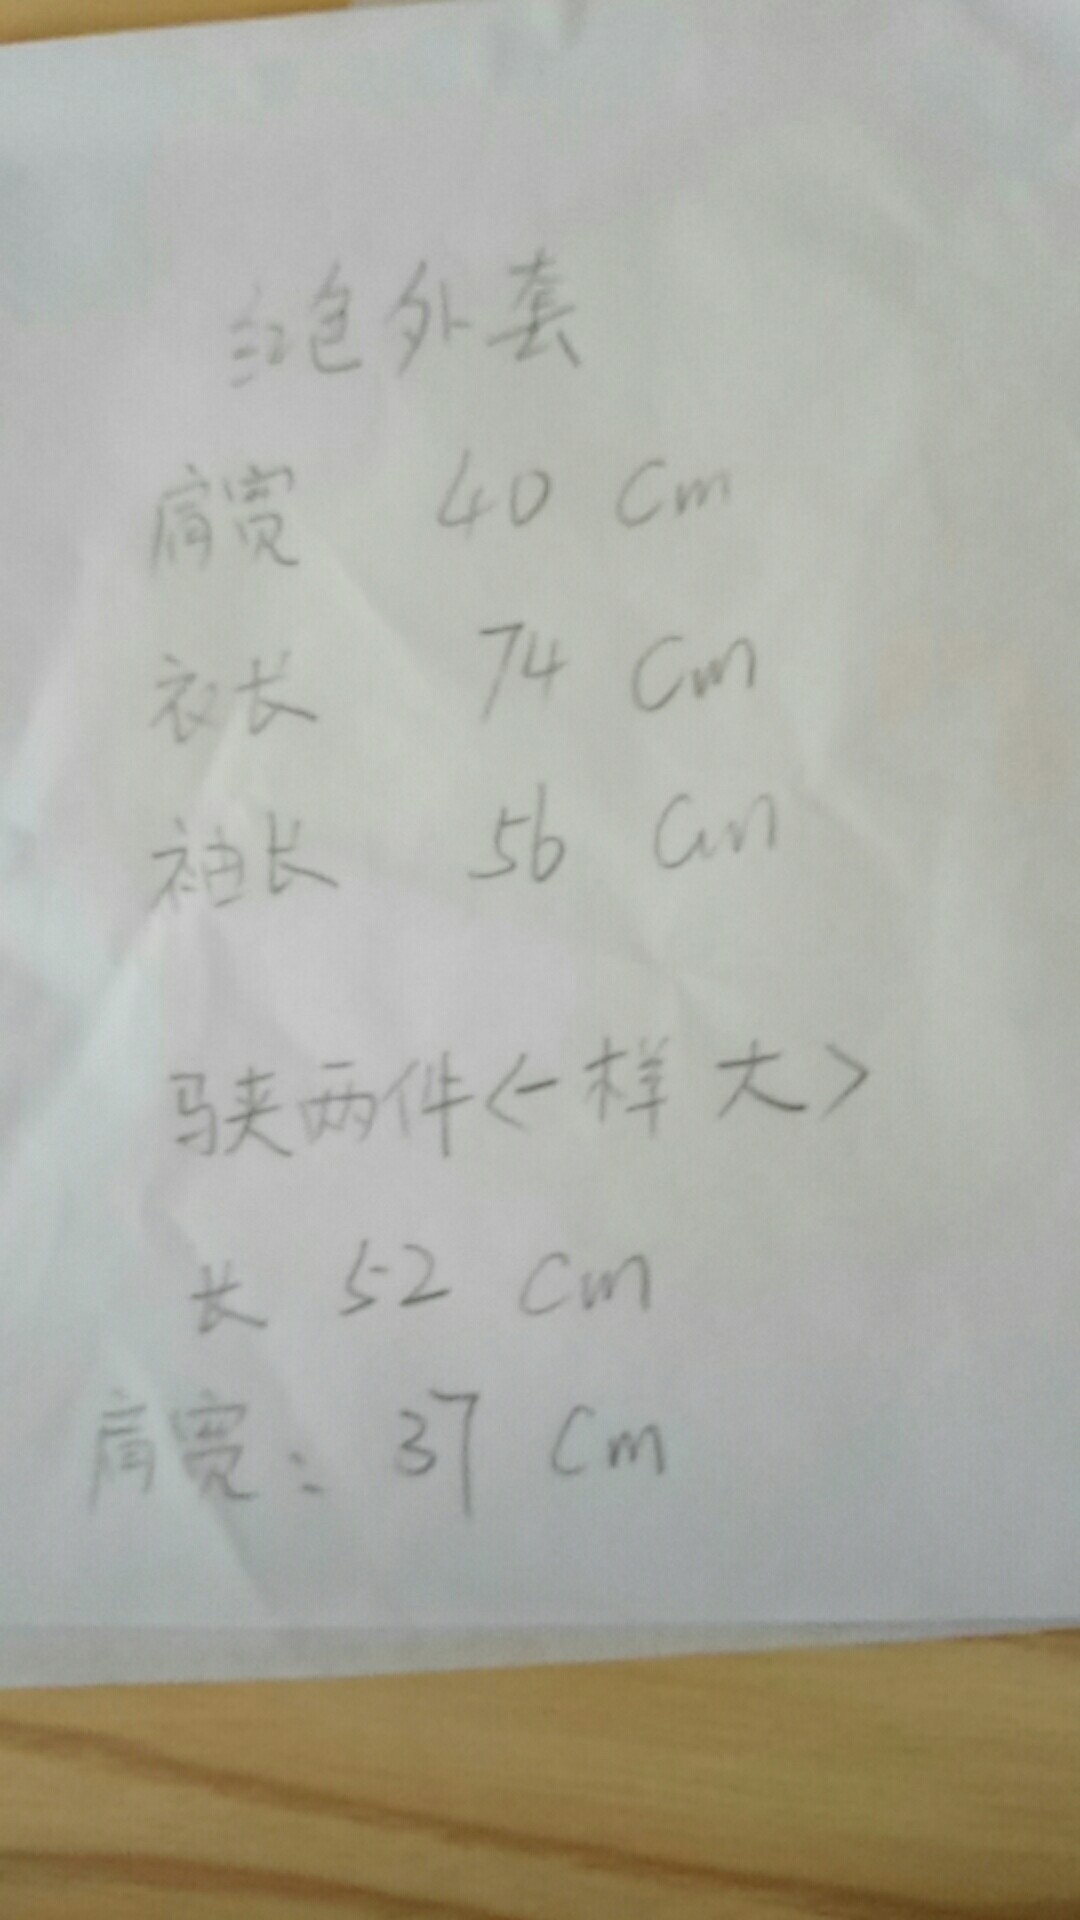 红色外套
肩宽 40 Cm
衣长 74 Cm
袖长 56 Cm
马夹两件<一样大>
长 52 Cm
肩宽: 37 Cm